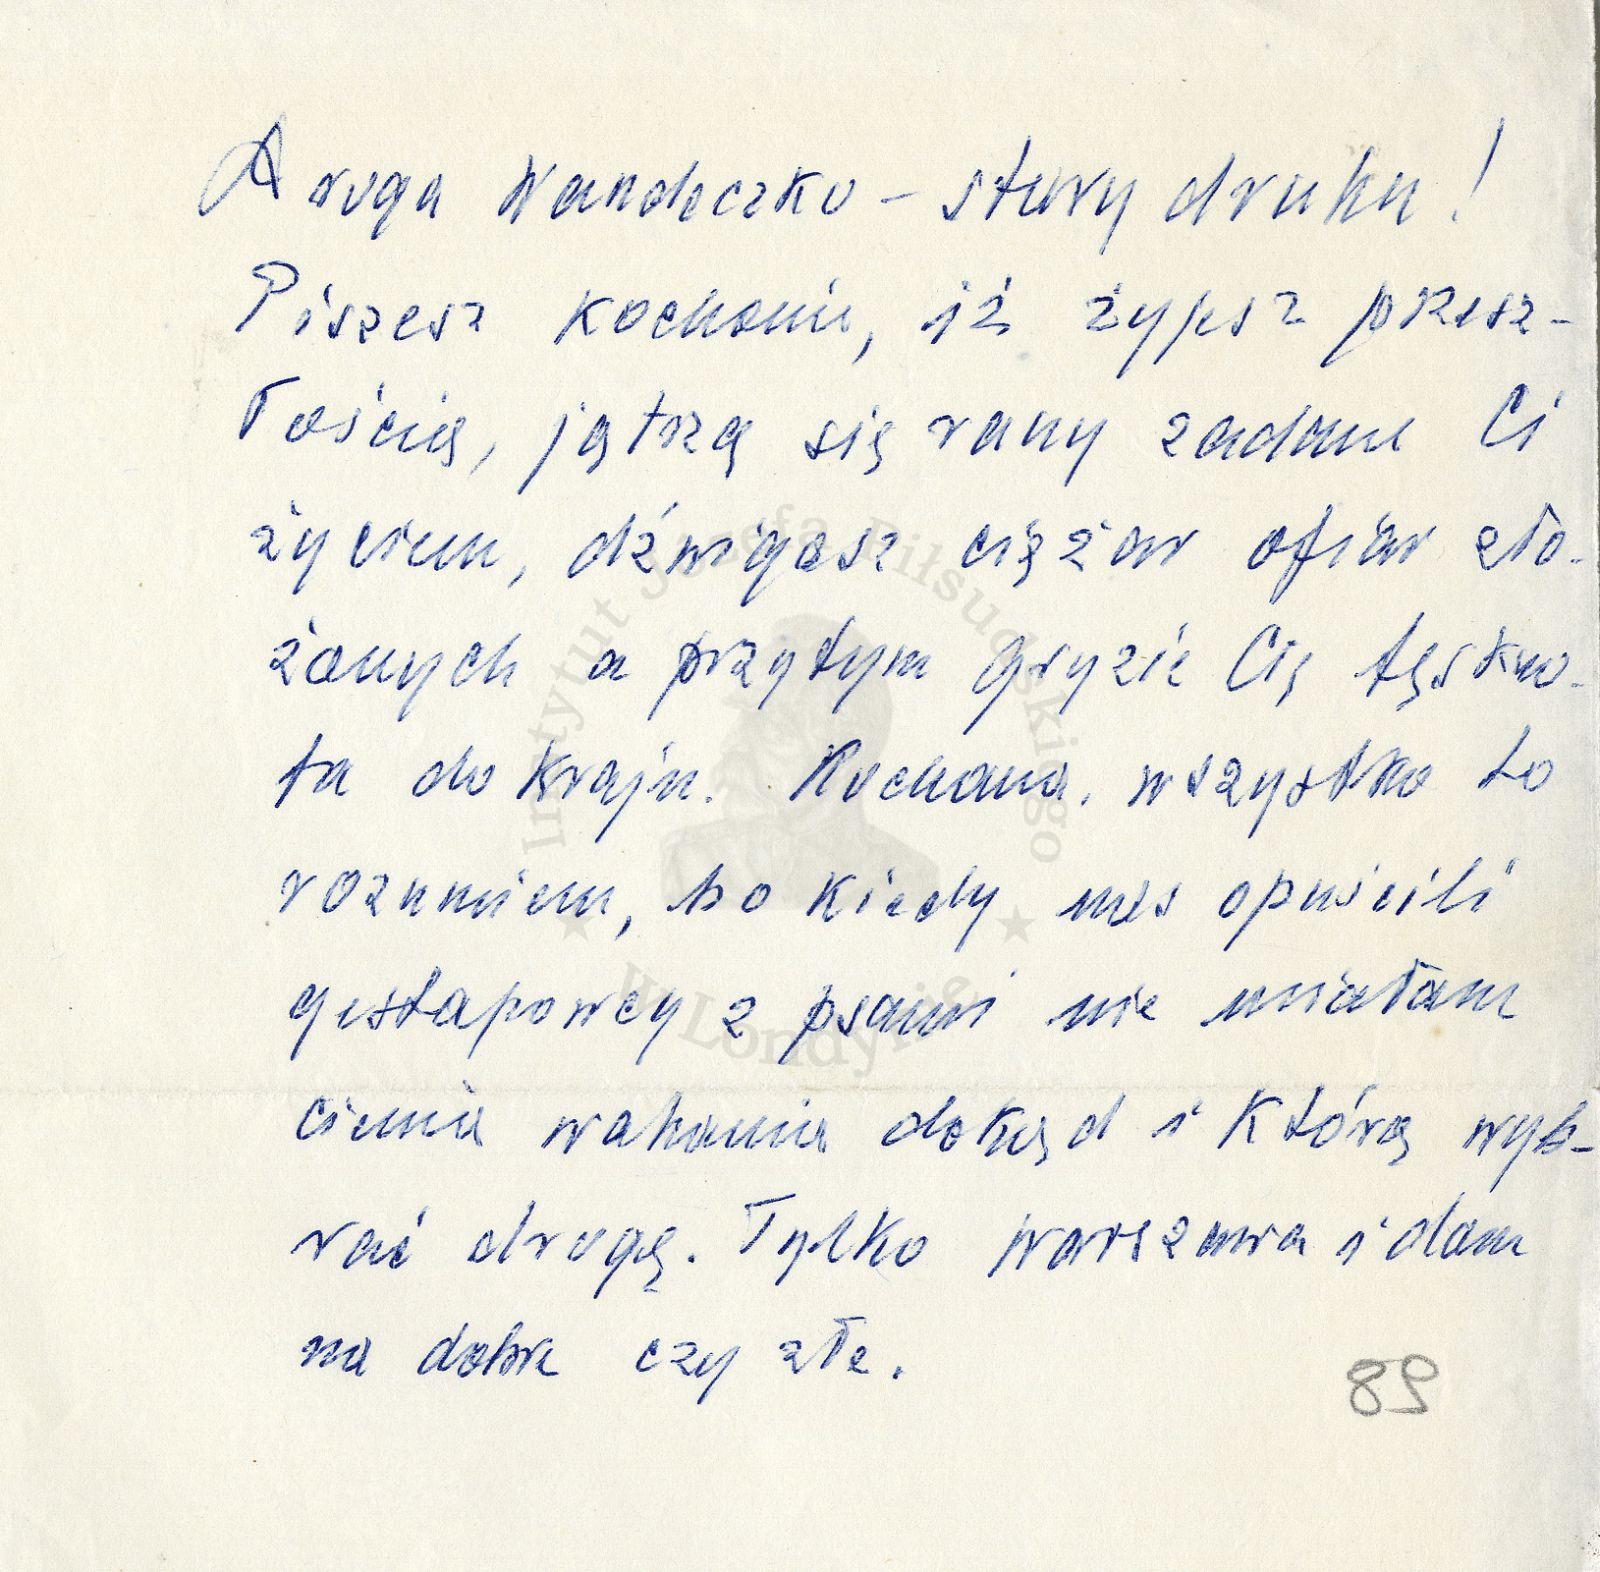 Droga Wandeczko – stary druhu!
Piszesz kochanie, iż żyjesz przesz-
łością, jątrzą się rany zadane Ci
życiem, dźwigasz ciężar ofiar zło-
żonych a przytym gryzie Cię tęskno-
ta do kraju. Kochana, wszystko to
rozumiem, bo kiedy nas opuścili
gestapowcy z psami nie miałam
cienia wahania dokąd i którą wyb-
rać drogę. Tylko Warszawa i dom
na dobre czy złe.
89
Instytut Józefa Piłsudskiego
w Londynie